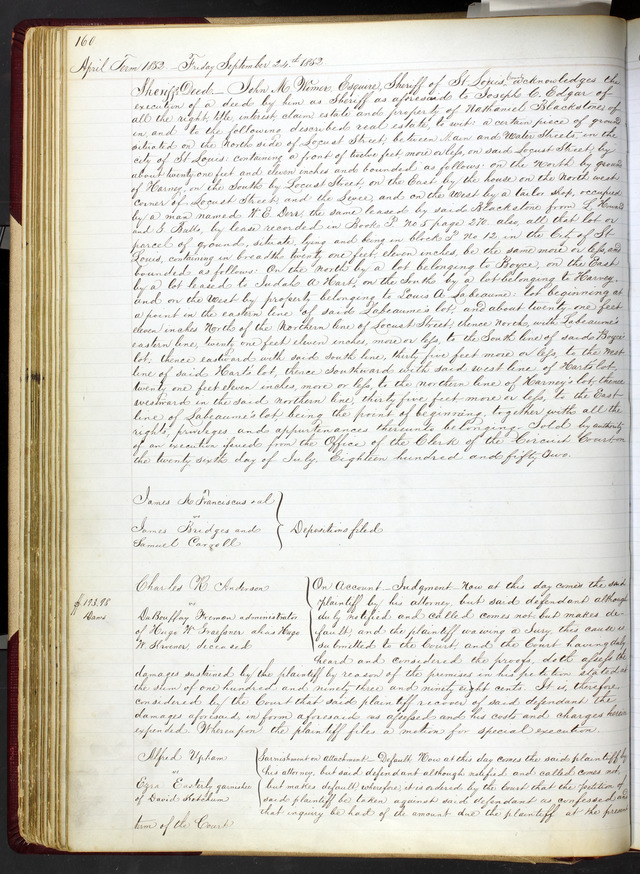 160
April Term 1852 – Friday September 24th 1852
Sheriff's Deed – John M. Wimer, Esquire, Sheriff of St Louis County acknowledges the
execution of a deed by him as Sheriff as aforesaid to Joseph C. Edgar of
all the right, title interest, claim estate and property of Nathaniel Blackstone of
in, and to the following described real estate, to wit: a certain piece of ground
situated on the North side of Locust Street, between Main and Water Streets, in the
city of St Louis: containing a front of twelve feet more or less, on said Locust Street, by
about twenty one feet and eleven inches and bounded as follows: on the North by ground
of Harney, on the South by Locust Street, on the East by the house on the North west
corner of Locust Street and the Levee, and on the West by a tailor shop, occupied
by a man named W. C. Derr, the same leased by said Blackstone from
and Butts, by lease recorded in Book P. No 5 page 270. also, all that lot or
parcel of ground, situate, lying and being in block No 12, in the City of St.
Louis, containing in breadth twenty one feet, eleven inches, be the same more or less, and
bounded as follows: On the North by a lot belonging to Boyce, on the East
by a lot leased to Judah A. Hart, on the South by a lot belonging to Harney
and on the West by property belonging to Louis A. Labeaume: lot beginning at
a point in the eastern line of said Labeaume's lot, and about twenty one feet
eleven inches North of the Northern line of Locust Street; thence North, with Labeaume's
eastern line, twenty one feet eleven inches, more or less, to the South line of said Boyce
lot; thence eastward with said South line, thirty five feet more or less, to the West
line of said Hart's lot, thence Southward with said west line of Hart's lot
twenty one feet eleven inches, more or less, to the northern line of Harney's lot; thence
westward in the said northern line, thirty five feet more or less, to the East
line of Labeaume's lot being the point of beginning, together with all the
rights privileges and appurtenances thereunto belonging. Sold by authority
of an execution issued from the Office of the Clerk of the Circuit Court on
the twenty sixth day of July, Eighteen hundred and fifty two.
James R Franciscus et al
vs
James Bridges and
Samuel Cargoll
Depositions filed
$193.98
Dams
Charles R. Anderson
vs
DuBouffay Fremon administrator
of Hugo W. alias Hugo
W. deceased
On Account – Judgment – Now at this day comes the said
plaintiff by his attorney, but said defendant although
duly notified and called comes not, but makes de-
fault; and the plaintiff waiving a Jury, this cause is
submitted to the Court, and the Court having duly
heard and considered the proofs, doth assess the
damages sustained by the plaintiff by reason of the premises in his petition stated at
the sum of one hundred and ninety three and ninety eight cents. It is, therefore
considered by the Court that said plaintiff recover of said defendant the
damages aforesaid, in form aforesaid as assessed and his costs and charges herein
expended. Whereupon the plaintiff files a motion for special execution.
Alfred Upham
vs
Ezra Easterly garnishee
of David Ketchum
Garnishment on attachment – Default – Now at this day comes the said plaintiff by
his attorney, but said defendant although notified and called comes not,
but makes default; wherefore, it is ordered by the Court that the petition of
said plaintiff be taken against said defendant as confessed and
that inquiry be had of the amount due the plaintiff at the present
term of the Court